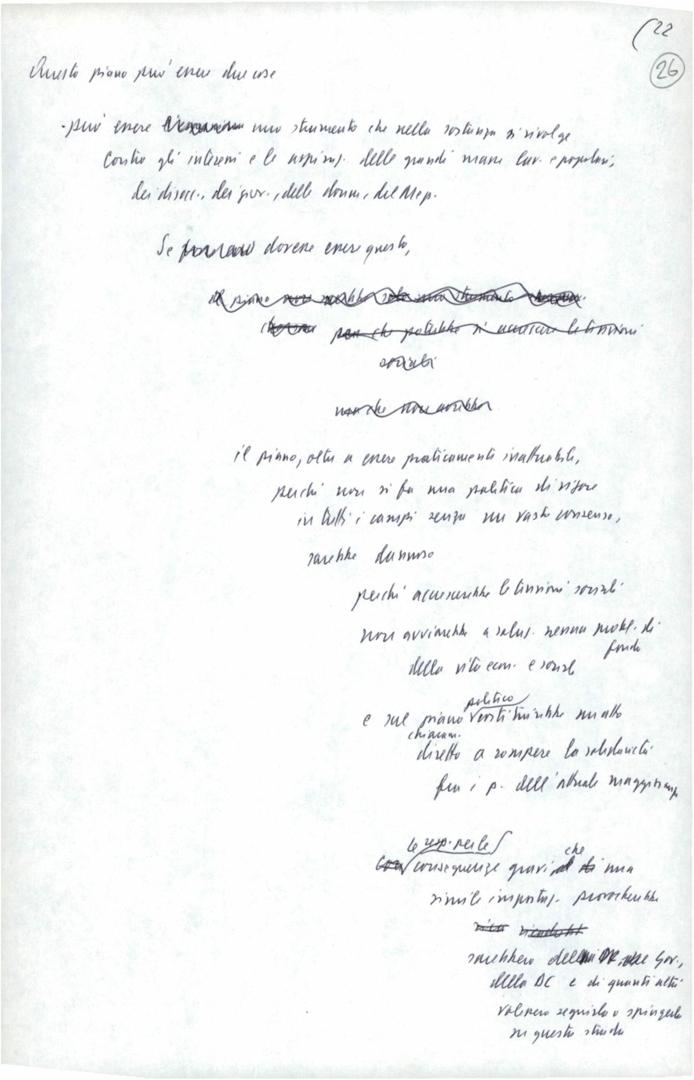 22
26
Questo piano può essere due cose
- può essere uno strumento che nella sostanza si rivolge
contro gli interessi e le aspiraz. delle grandi masse lav. e popolari,
dei disocc., dei giov., delle donne, del Mezz.
Se dovesse essere questo,
il piano non sarebbe solo uno strumento
che potrebbe accrescere le tensioni
sociali
ma che non avrebbe
il piano, oltre a essere praticamente inattuabile,
perché non si fa una politica di rigore
in tutti i campi senza un vasto consenso,
sarebbe dannoso
perché accrescerebbe le tensioni sociali
non avvierebbe a soluz. nessun probl. di
fondo
della vita econ. e sociale
politico
e sul piano costituirebbe un atto
chiaram.
diretto a rompere la solidarietà
fra i p. dell'attuale maggioranza
le resp. per le che
conseguenze gravi una
simile impostaz. provocherebbe
sarebbero del Gov.,
della DC e di quanti altri
volessero seguirla o spingerla
su questa strada